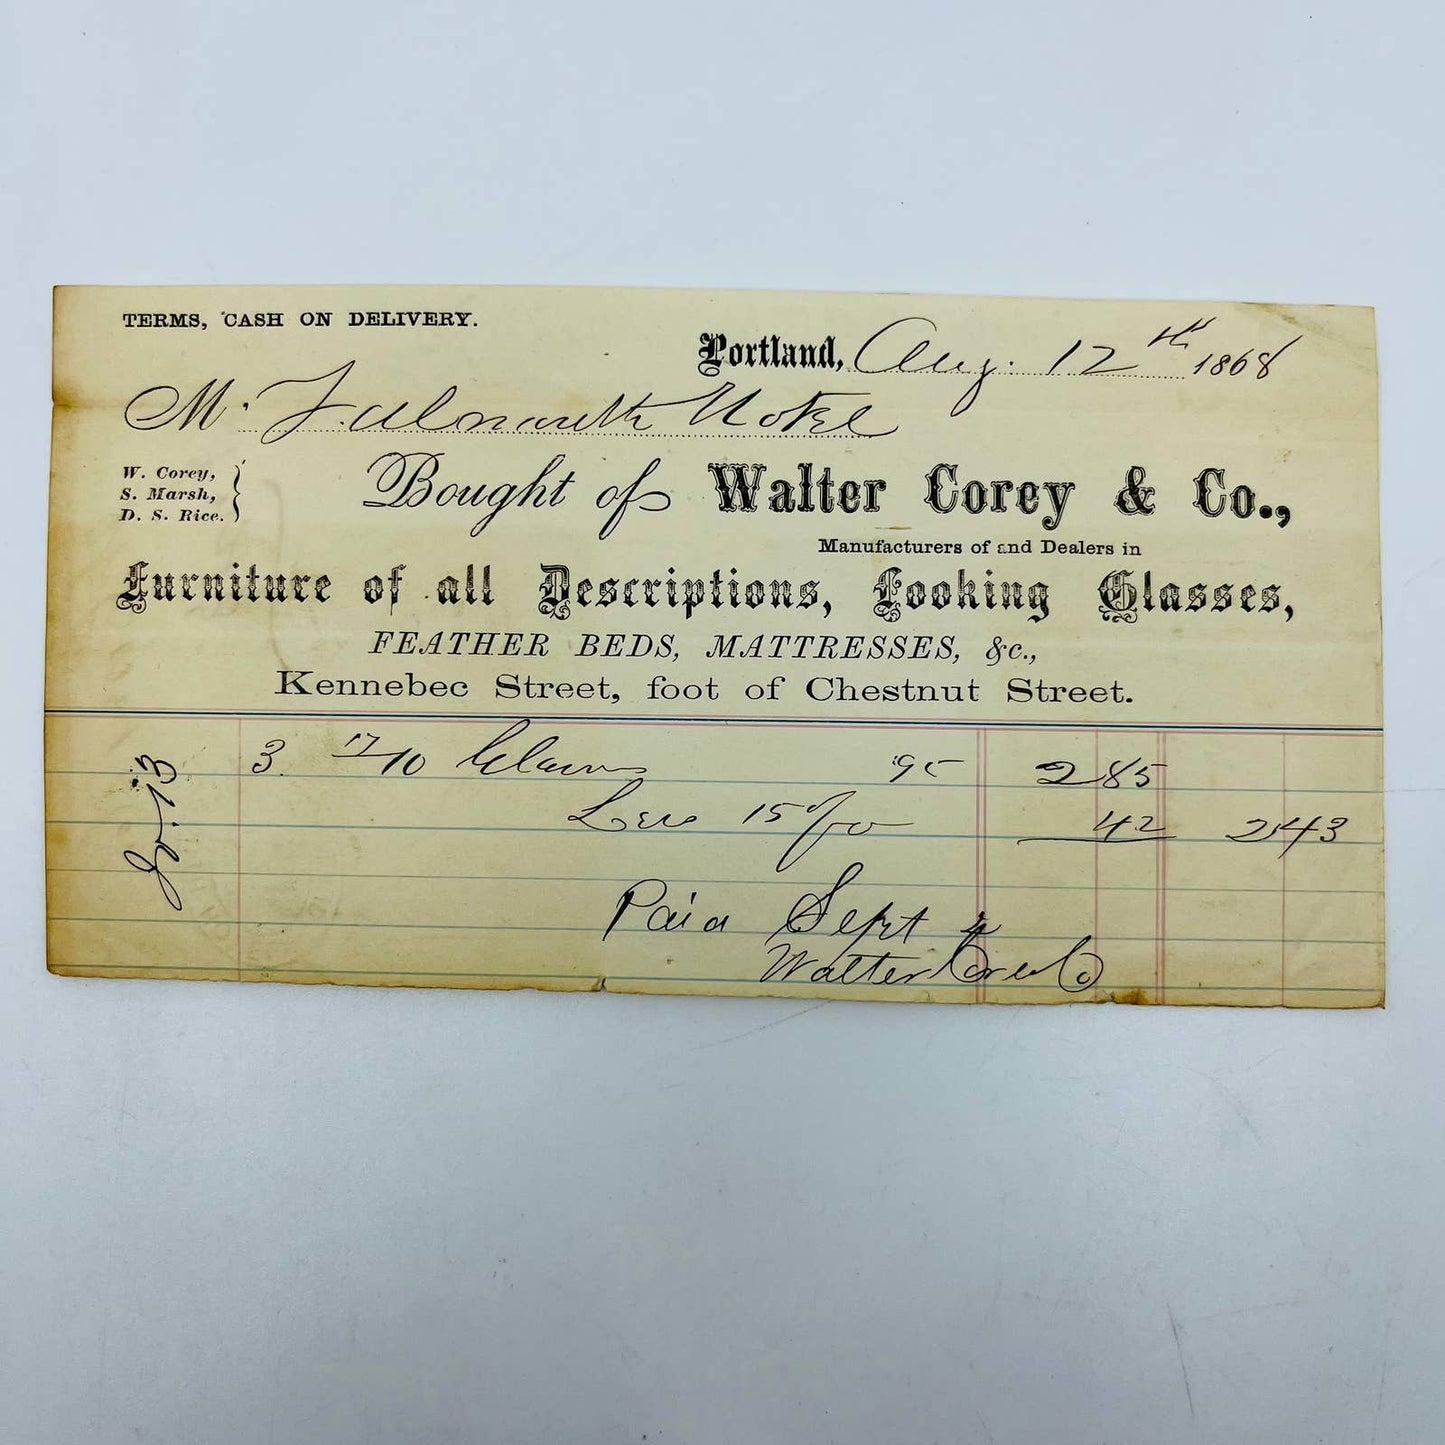 TERMS, CASH ON DELIVERY.
Portland, Aug. 12th 1868
M. Falmouth Hotel
W. Corey,
S. Marsh,
D. S. Rice.
Bought of Walter Corey & Co.,
Manufacturers of and Dealers in
Furniture of all Descriptions, Looking Glasses,
FEATHER BEDS, MATTRESSES, &c.,
Kennebec Street, foot of Chestnut Street.
3 17/10 95 2 85
Less 15 % 42 2 43
Paid Sept
Walter Corey Co